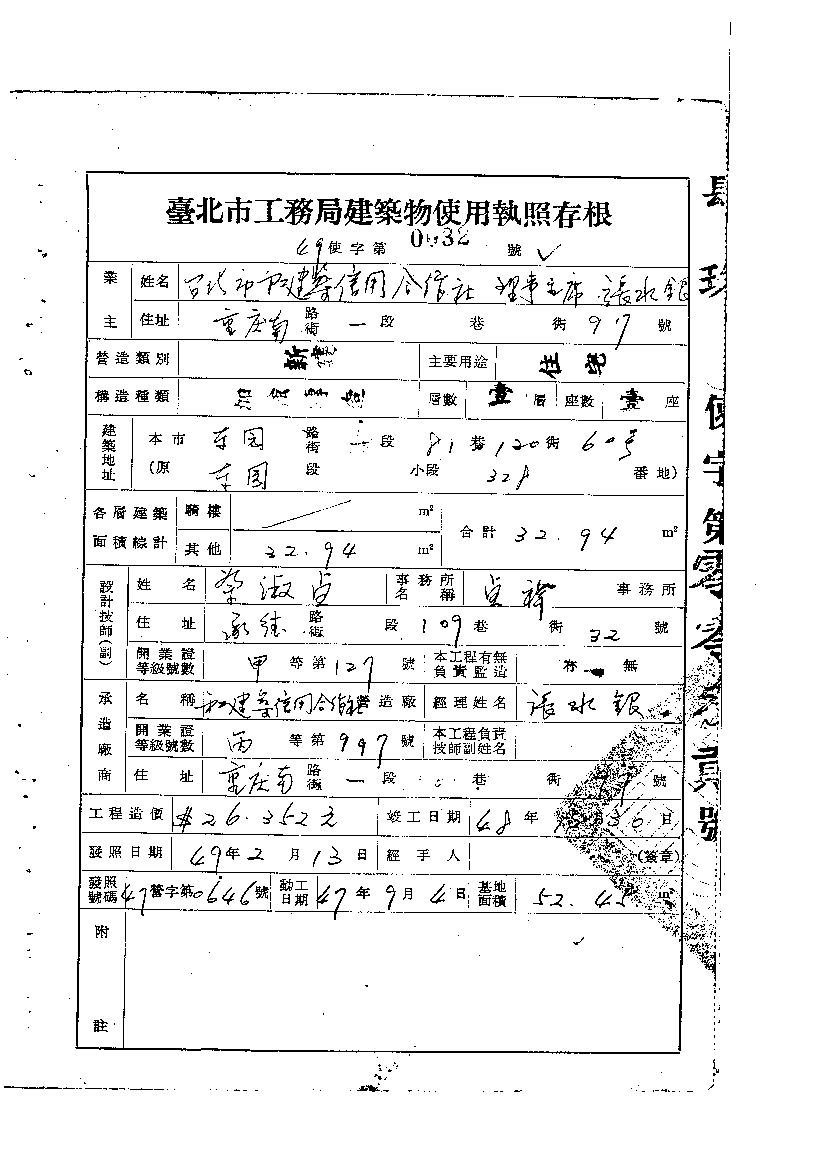 臺北市工務局建築物使用執照存根
49使字第0032號
業主 姓名 建築信用合作社 理事主席 張水銀
住址 重庆南路街一段 巷 街97號
營造類別 新建 主要用途 住宅
構造種類 加 層數 壹層 座數 壹座
建築地址 本市 东园路街一段81巷120街60号
(原 东园段 小段 328 番地)
各層建築面積線計 騎樓 m² 合計 32.94 m²
其他 32.94 m²
設計技師(副) 姓名 淑貞 事務所名稱 貞祥 事務所
住址 承德路街 段109巷 街32號
開業證等級號數 甲等第127號 本工程有無負責監造 無
承造廠商 名稱 建築信用合作社營造廠 經理姓名 張水銀
開業證等級號數 丙等第997號 本工程負責技師副姓名
住址 重庆南路街一段 巷 街 號
工程造價 $26.352元 竣工日期 48年 30日
發照日期 49年2月13日 經手人 (簽章)
發照號碼 47營字第0646號 動工日期 47年9月4日 基地面積 52.45
附註
使字第零零 貳號